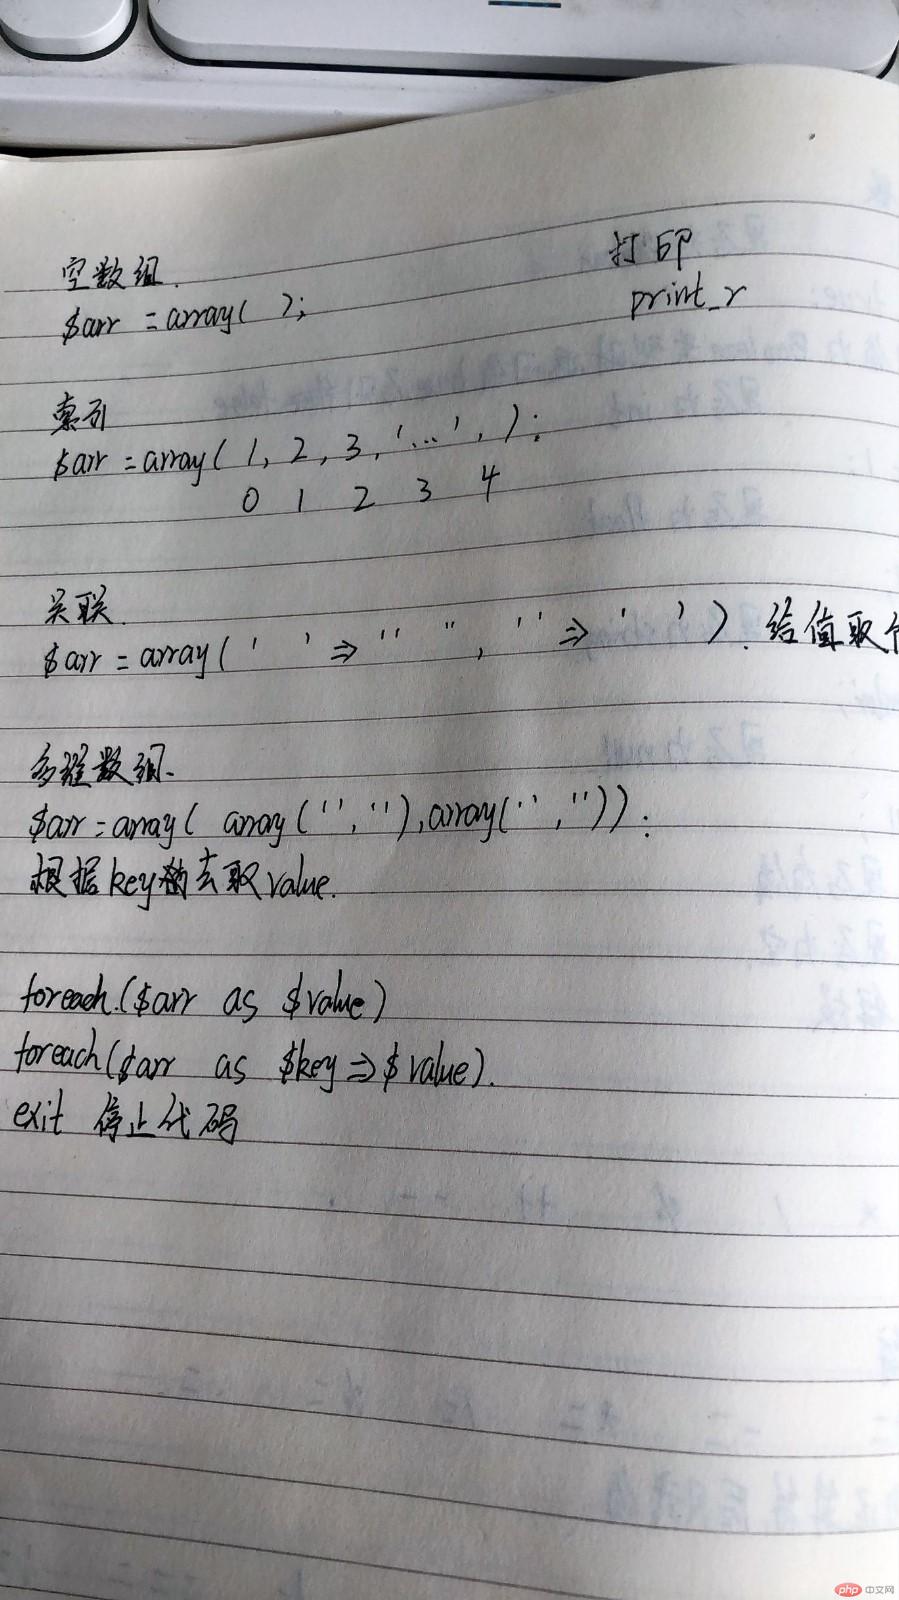 空数组.
打印
$arr = array( );
print_r
索引
$arr = array( 1, 2, 3, '...', );
0 1 2 3 4
关联.
$arr = array( ' ' => " ", '' => ' ' ). 给值取个
多维数组.
$arr = array( array('',''),array('','')):
根据key去取value.
foreach.($arr as $value)
foreach($arr as $key=>$value).
exit 停止代码
php 中文网